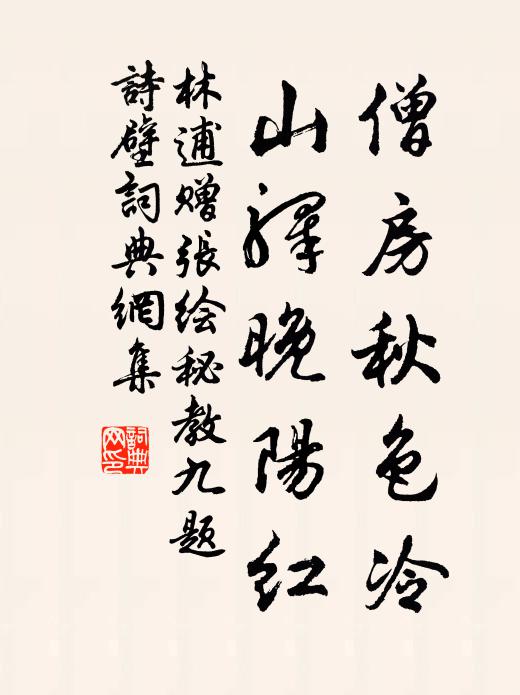 僧房秋色冷
山驛晚陽紅
林逋赠張绘秘教九題
詩壁詞典網集
詞典網印